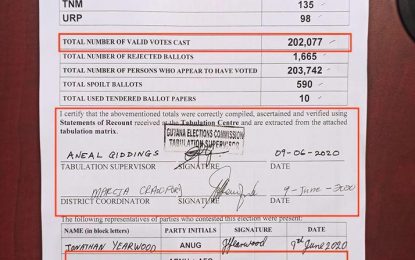 TNM 135
URP 98
TOTAL NUMBER OF VALID VOTES CAST 202,077
TOTAL NUMBER OF REJECTED BALLOTS 1,665
TOTAL NUMBER OF PERSONS WHO APPEAR TO HAVE VOTED 203,742
TOTAL SPOILT BALLOTS 590
TOTAL USED TENDERED BALLOT PAPERS 10
I certify that the abovementioned totals were correctly compiled, ascertained and verified using
Statements of Recount received at the Tabulation Centre and are extracted from the attached
tabulation matrix.
GUYANA ELECTIONS COMMISSION
TABULATION SUPERVISOR
ANEAL GIDDINGS 09-06-2020
TABULATION SUPERVISOR SIGNATURE DATE
MARCIA CRAWFORD 9-June-2020
DISTRICT COORDINATOR SIGNATURE DATE
The following representatives of parties who contested this election were present:
NAME (in block letters) PARTY INITIALS SIGNATURE DATE
JONATHAN YEARWOOD ANUG JYearwood 9th June 2020